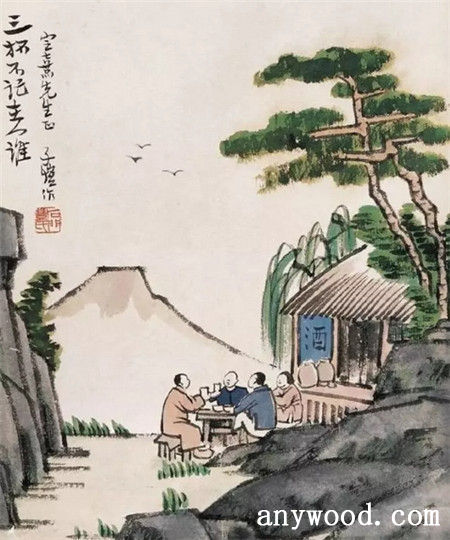 三杯不記主人誰
先生正 子愷作
酒
anywood.com